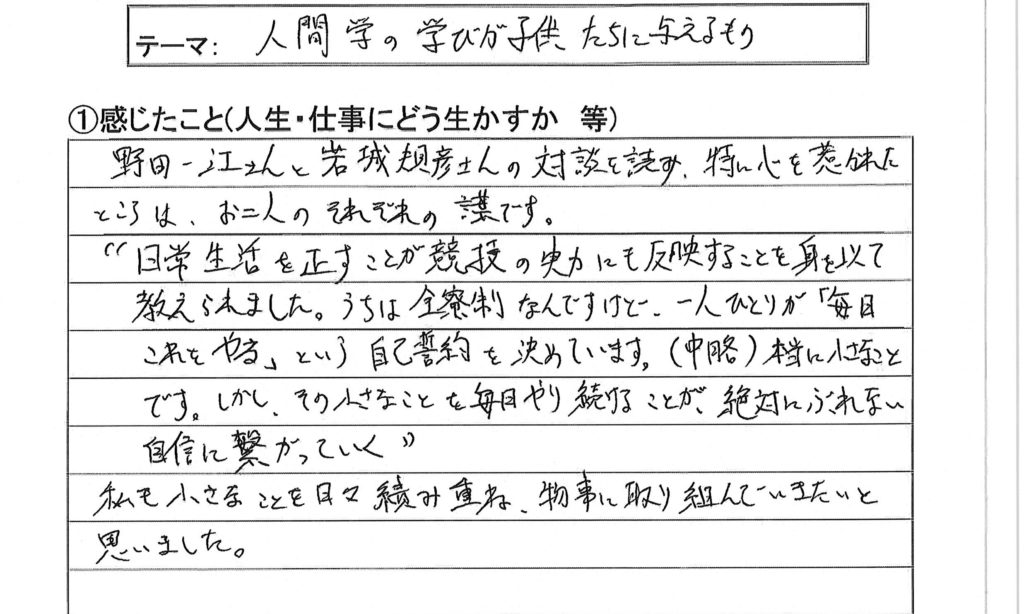 テーマ： 人間学の学びが子供たちに与えるもの
①感じたこと(人生・仕事にどう生かすか　等)
野田一江さんと岩城規彦さんの対談を読み、特に心を惹かれた
ところは、お二人のそれぞれの言葉です。
“日常生活を正すことが競技の実力にも反映することを身を以て
教えられました。うちは全寮制なんですけど、一人ひとりが「毎日
これをやる」という自己誓約を決めています。(中略)本当に小さなこと
です。しかし、その小さなことを毎日やり続けることが、絶対にぶれない
自信に繋がっていく”
私も小さなことを日々積み重ね、物事に取り組んでいきたいと
思いました。